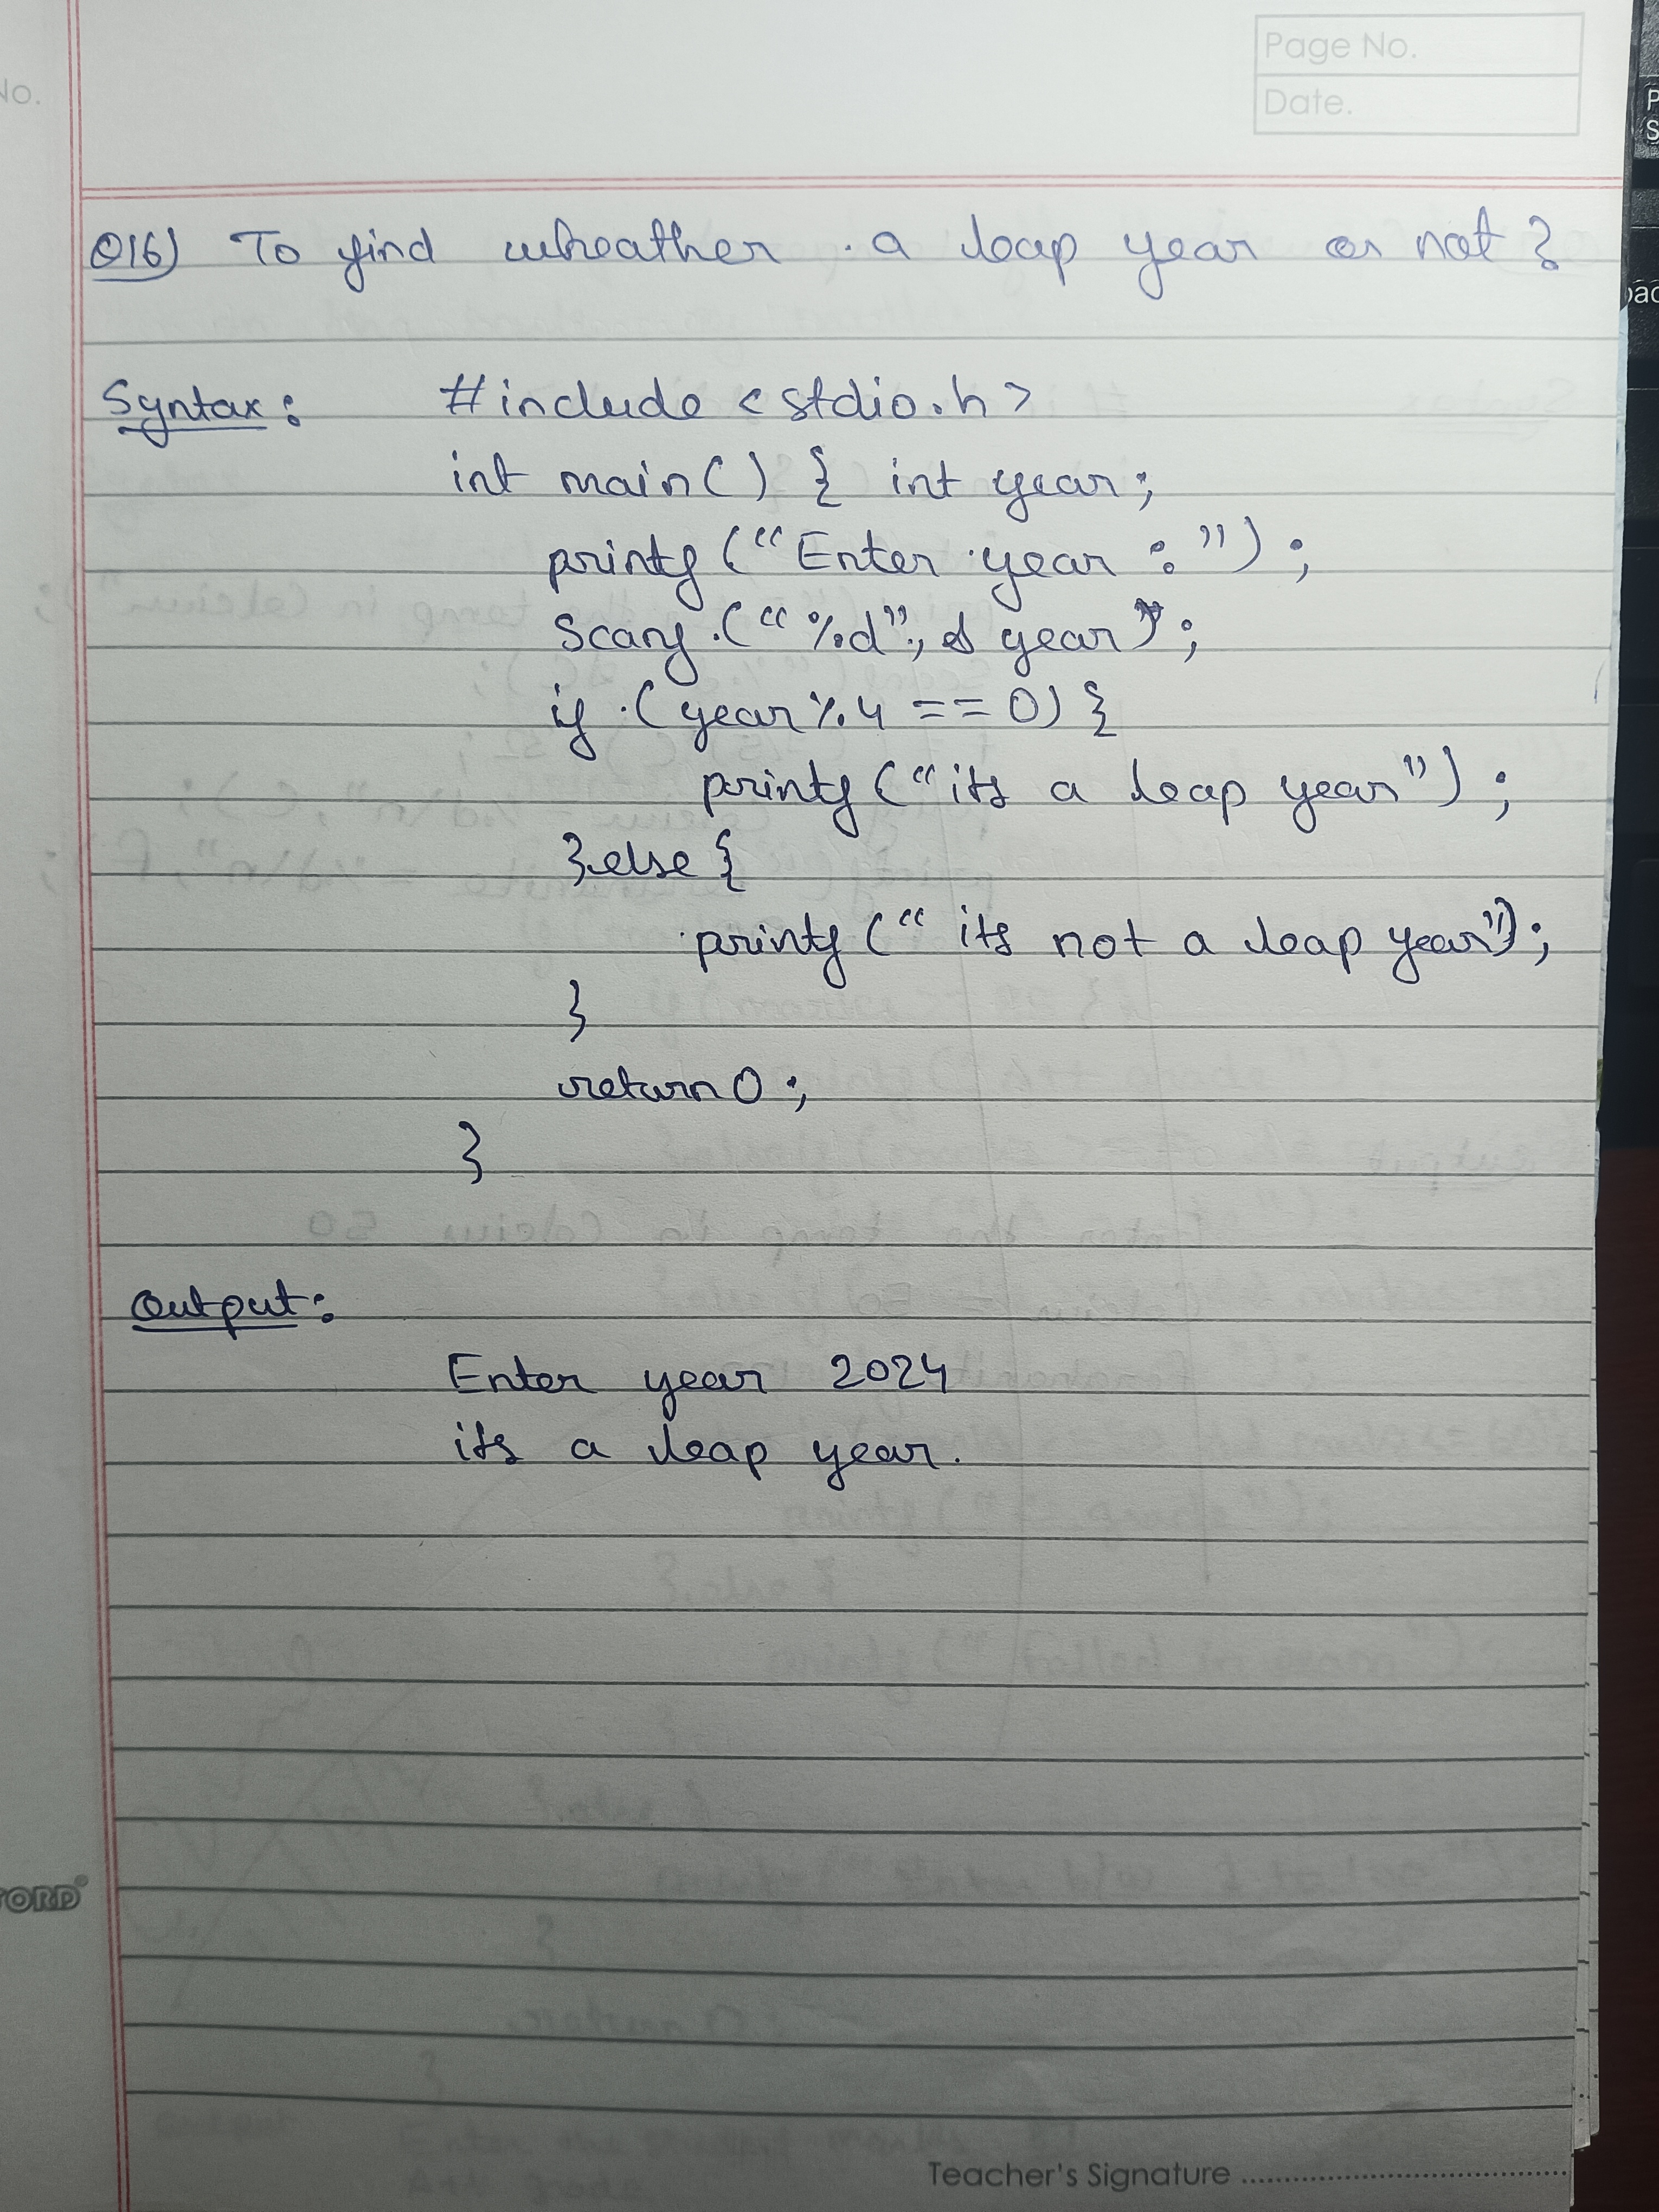 No.
Page No.
Date.
Q16) To find wheather a leap year or not?
Syntax: #include <stdio.h>
int main() { int year;
printf ("Enter year : ");
Scanf ("%d", & year);
if (year % 4 == 0) {
printf ("its a leap year");
} else {
printf (" its not a leap year");
}
return 0;
}
Output:
Enter year 2024
its a leap year.
Teacher's Signature